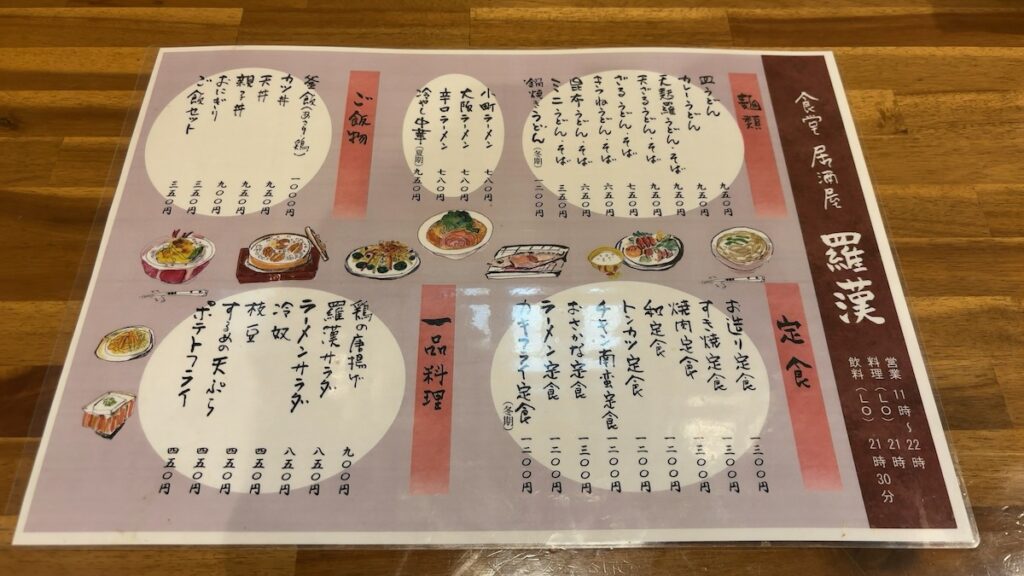 食堂 居酒屋 羅漢
営業 11時～22時
料理（LO） 21時
飲料（LO） 21時30分
麺類
皿うどん 九五〇円
カレーうどん・そば 九五〇円
天麩羅うどん・そば 九五〇円
天ざるうどん・そば 九五〇円
ざるうどん・そば 七五〇円
きつねうどん・そば 六五〇円
昆布うどん・そば 六五〇円
ミニうどん・そば 三五〇円
鍋焼きうどん（冬期） 一二〇〇円
小町ラーメン 七八〇円
大阪ラーメン 七八〇円
辛口ラーメン 七八〇円
冷やし中華（夏期） 九五〇円
ご飯物
釜飯（あさり・鶏） 一〇〇〇円
カツ丼 九五〇円
天丼 九五〇円
親子丼 九〇〇円
おにぎり 三五〇円
ご飯セット 三五〇円
定食
お造り定食 一三〇〇円
すき焼定食 一三〇〇円
焼肉定食 一三〇〇円
和定食 一二〇〇円
トンカツ定食 一二〇〇円
チキン南蛮定食 一二〇〇円
おさかな定食 一三〇〇円
ラーメン定食 一二〇〇円
カキフライ定食（冬期） 一二〇〇円
一品料理
鶏の唐揚げ 九〇〇円
羅漢サラダ 八五〇円
ラーメンサラダ 八五〇円
冷奴 四五〇円
枝豆 四五〇円
するめの天ぷら 四五〇円
ポテトフライ 四五〇円